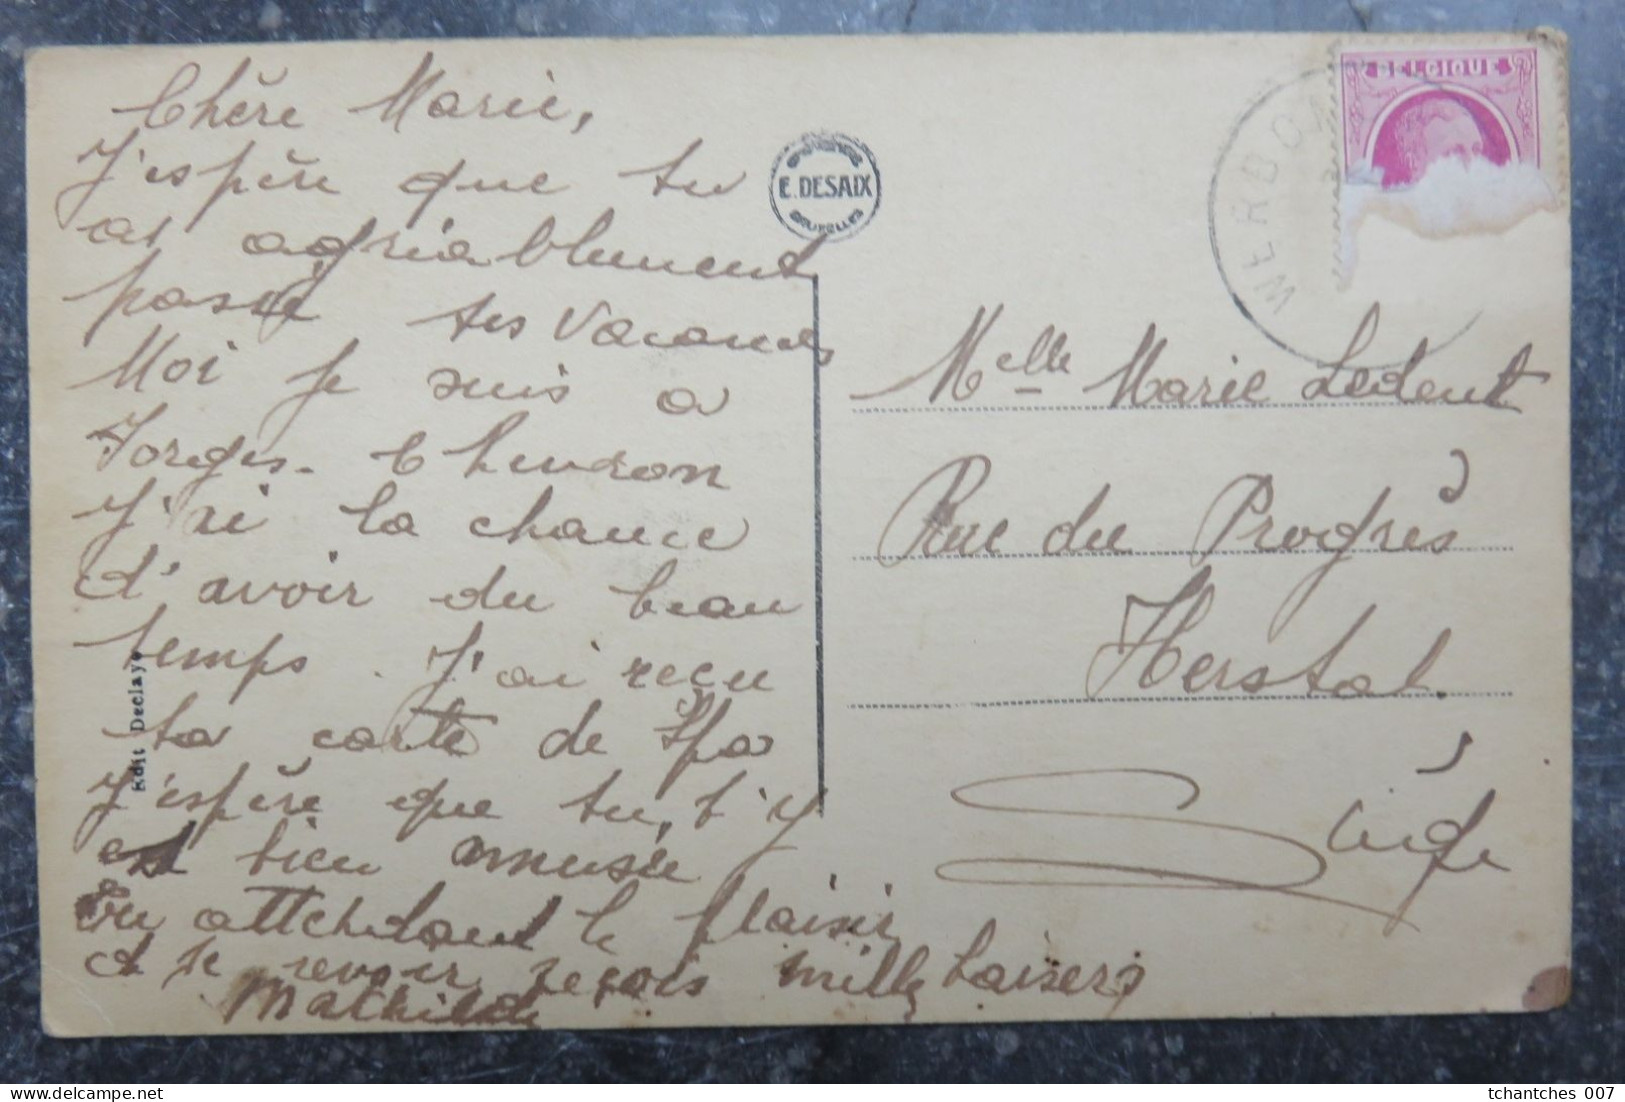 Chère Marie,
J'espère que tu
as agréablement
passé tes vacances
Moi je suis a
Forges-Chevron
J'ai la chance
d'avoir du beau
temps. J'ai reçu
ta carte de Spa
J'espère que tu, t'y
es bien amusée
En attendant le plaisir
de se revoir reçois mille baisers
Mathilde
Edit Declaye
E. DESAIX
BRUXELLES
BELGIQUE
WERBOM
Melle Marie Ledent
Rue du Progrès
Herstal.
Liége
tchantches 007